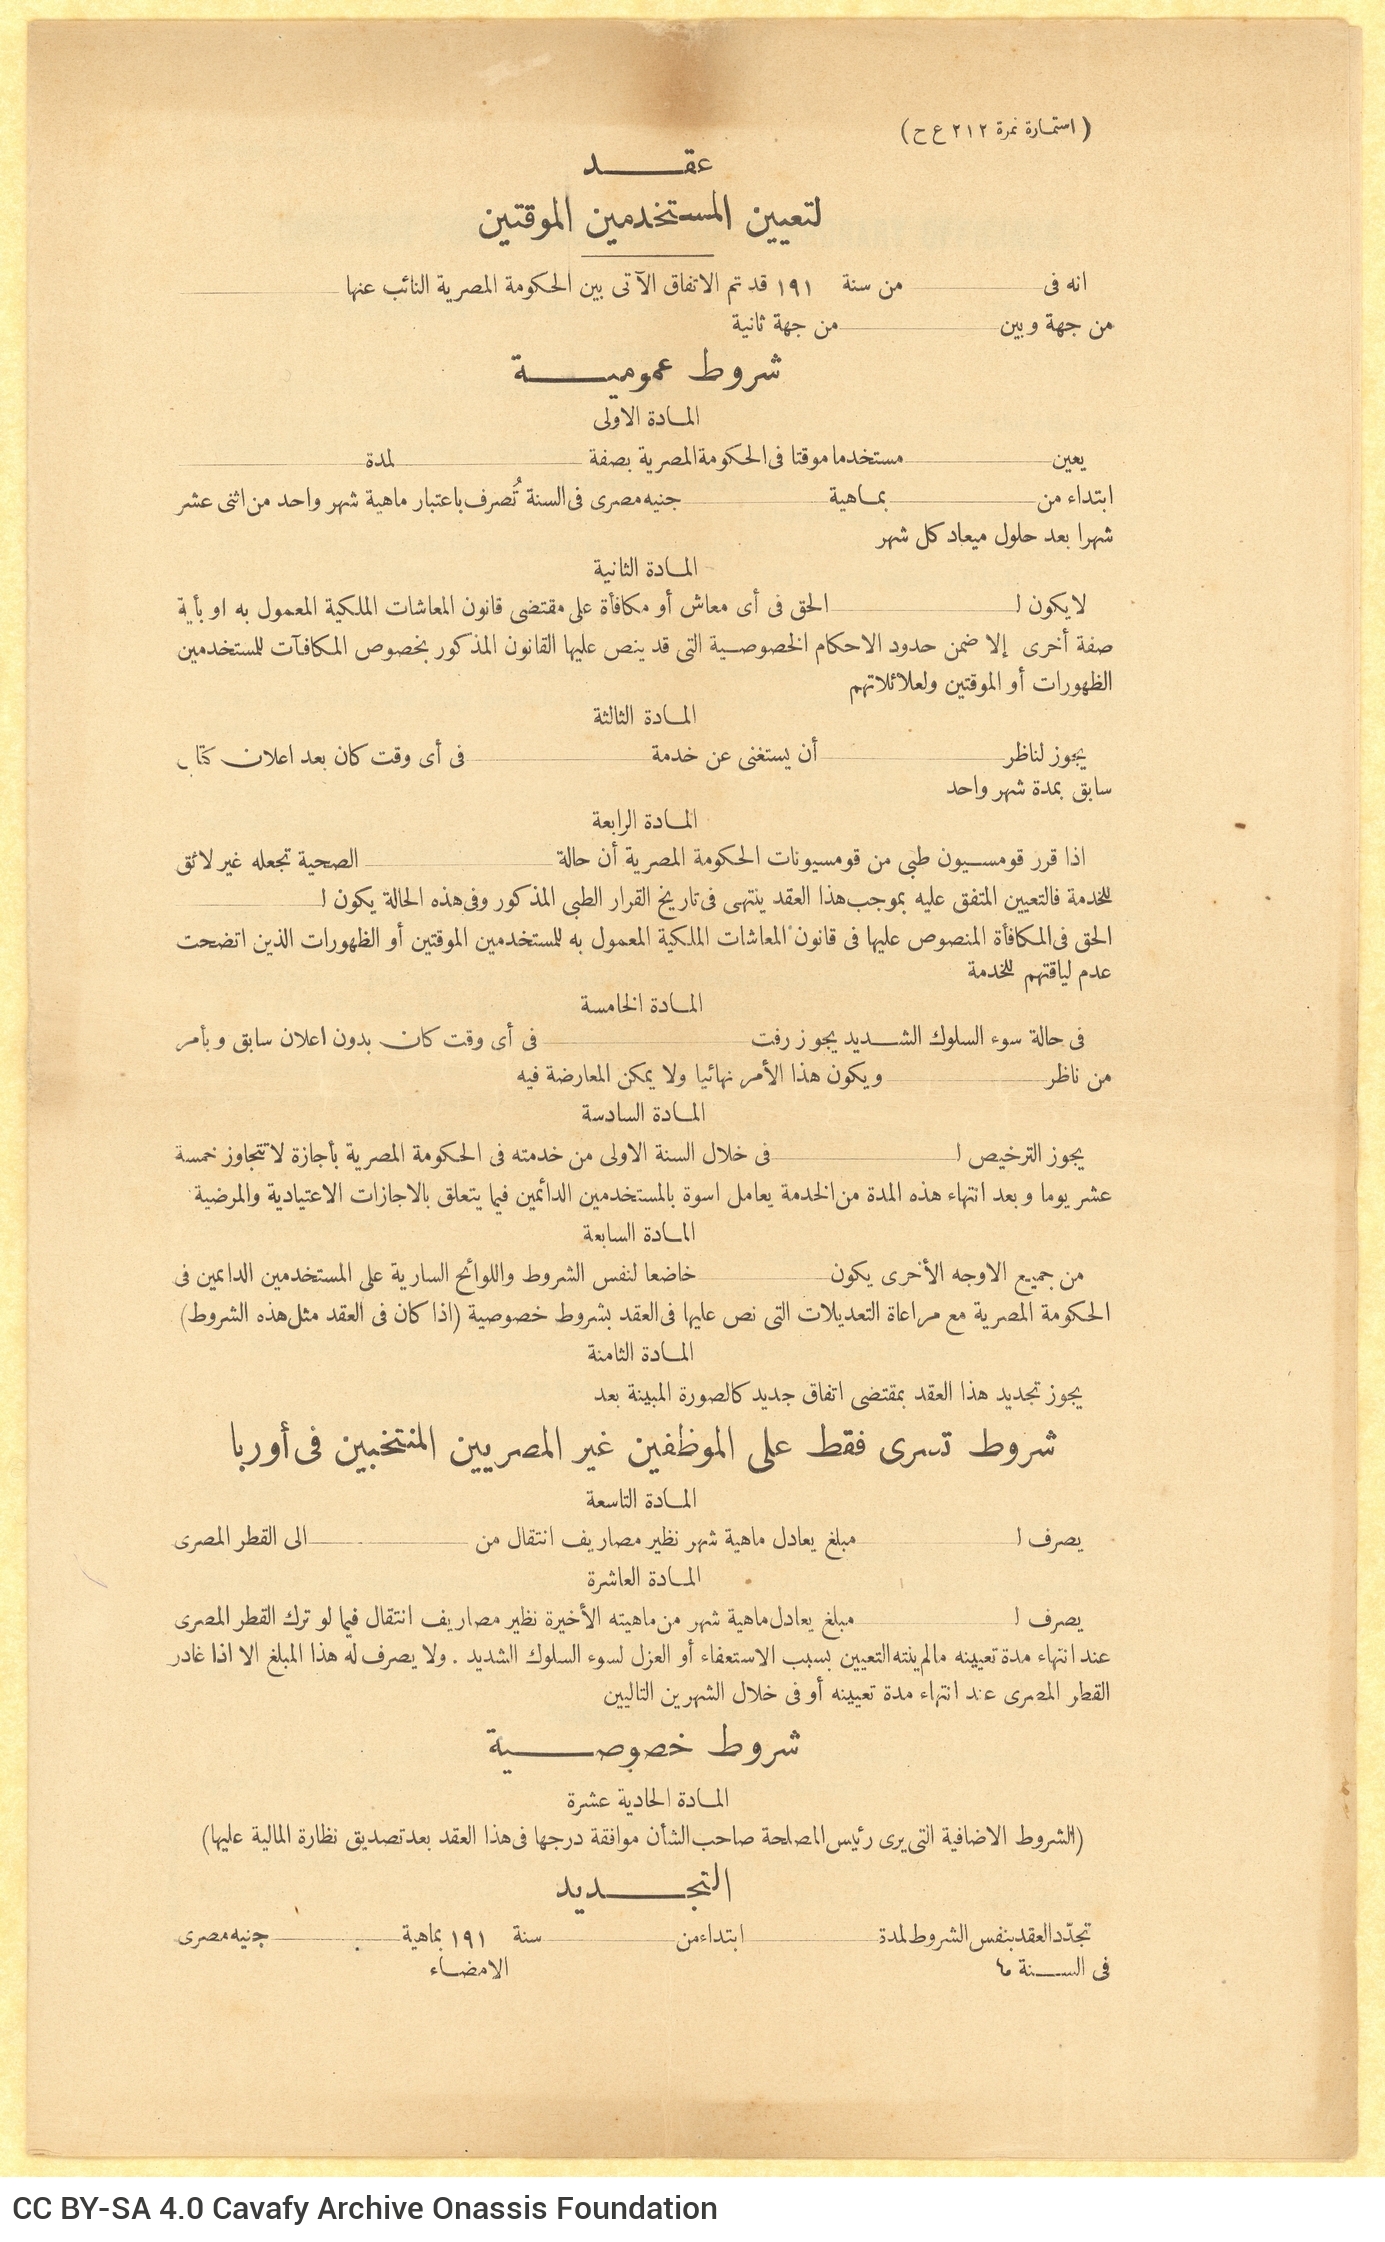 (استمارة نمرة ٢١٢ ع ح)
عقــــد
لتعيين المستخدمين الموقتين
انه فى من سنة ١٩١ قد تم الاتفاق الآتى بين الحكومة المصرية النائب عنها
من جهة وبين من جهة ثانية
شروط عموميــــة
المــادة الاولى
يعين مستخدما موقتا فى الحكومة المصرية بصفة لمدة
ابتداء من بمــاهية جنيه مصرى فى السنة تُصرف باعتبار ماهية شهر واحد من اثنى عشر
شهرا بعد حلول ميعاد كل شهر
المــادة الثانية
لا يكون ا الحق فى أى معاش أو مكافأة على مقتضى قانون المعاشات الملكية المعمول به او بأية
صفة أخرى إلا ضمن حدود الاحكام الخصوصــية التى قد ينص عليها القانون المذكور بخصوص المكافآت للمستخدمين
الظهورات أو الموقتين ولعلائلاتهم
المــادة الثالثة
يجوز لناظر أن يستغنى عن خدمة فى أى وقت كان بعد اعلان كتاب
سابق بمدة شهر واحد
المــادة الرابعة
اذا قرر قومســيون طبى من قومسيونات الحكومة المصرية أن حالة الصحية تجعله غير لائق
للخدمة فالتعيين المتفق عليه بموجب هذا العقد ينتهى فى تاريخ القرار الطبى المذكور وفى هذه الحالة يكون ا
الحق فى المكافأة المنصوص عليها فى قانون المعاشات الملكية المعمول به للمستخدمين الموقتين أو الظهورات الذين اتضحت
عدم لياقتهم للخدمة
المــادة الخامسة
فى حالة سوء السلوك الشــديد يجوز رفت فى أى وقت كان بدون اعلان سابق وبأمر
من ناظر ويكون هذا الأمر نهائيا ولا يمكن المعارضة فيه
المــادة السادسة
يجوز الترخيص ا فى خلال السنة الاولى من خدمته فى الحكومة المصرية بأجازة لا تتجاوز خمسة
عشر يوما وبعد انتهاء هذه المدة من الخدمة يعامل اسوة بالمستخدمين الدائمين فيما يتعلق بالاجازات الاعتيادية والمرضية
المــادة السابعة
من جميع الاوجه الأخرى يكون خاضعا لنفس الشروط واللوائح السارية على المستخدمين الدايمين فى
الحكومة المصرية مع مراعاة التعديلات التى نص عليها فى العقد بشروط خصوصية (اذا كان فى العقد مثل هذه الشروط)
المــادة الثامنة
يجوز تجديد هذا العقد بمقتضى اتفاق جديد كالصورة المبينة بعد
شروط تسرى فقط على الموظفين غير المصريين المنتخبين فى أوربا
المــادة التاسعة
يصرف ا مبلغ يعادل ماهية شهر نظير مصاريف انتقال من الى القطر المصرى
المــادة العاشرة
يصرف ا مبلغ يعادل ماهية شهر من ماهيته الأخيرة نظير مصاريف انتقال فيما لو ترك القطر المصرى
عند انتهاء مدة تعيينه مالم ينته التعيين بسبب الاستعفاء أو العزل لسوء السلوك الشديد . ولا يصرف له هذا المبلغ الا اذا غادر
القطر المصرى عند انتهاء مدة تعيينه أو فى خلال الشهرين التاليين
شروط خصوصــــية
المــادة الحادية عشرة
(الشروط الاضافية التى يرى رئيس المصلحة صاحب الشأن موافقة درجها فى هذا العقد بعد تصديق نظارة المالية عليها)
التجــــديد
تجدّد العقد بنفس الشروط لمدة ابتداء من سنة ١٩١ بماهية جنيه مصرى
فى الســنة
الامضــاء
CC BY-SA 4.0 Cavafy Archive Onassis Foundation